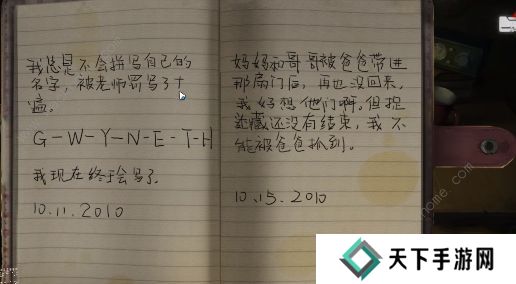 我总是不会拼写自己的
名字，被老师罚写了十
遍。
G-W-Y-N-E-T-H
我现在终于会写了。
10.11.2010
妈妈和哥哥被爸爸带进
那扇门后，再也没回来，
我好想他们啊。但捉
迷藏还没有结束，我不
能被爸爸抓到。
10.15.2010
天下手游网